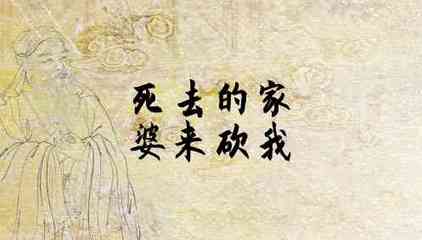 死去的家
婆来砍我